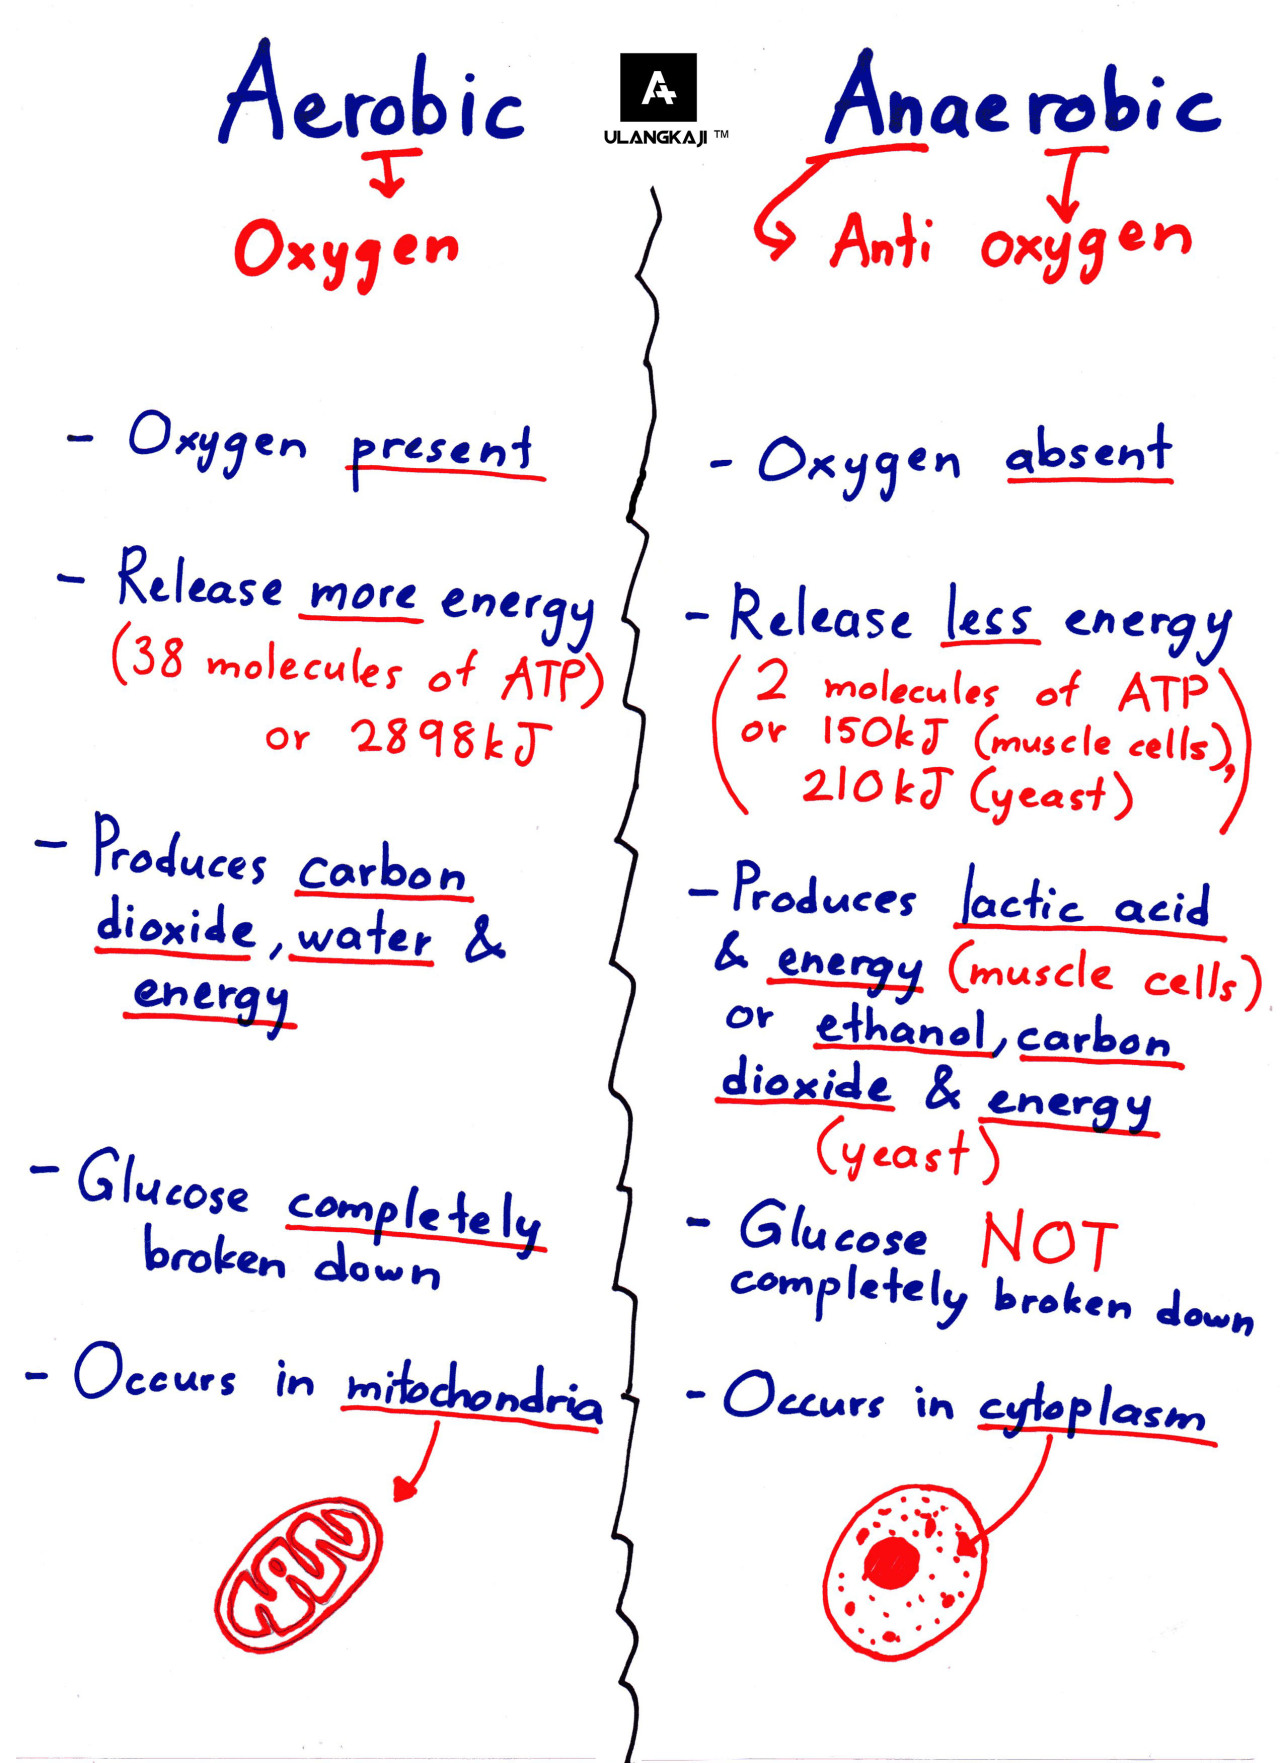 Aerobic
Oxygen
- Oxygen present
- Release more energy
(38 molecules of ATP)
or 2898kJ
- Produces carbon
dioxide, water &
energy
- Glucose completely
broken down
- Occurs in mitochondria
A+
ULANGKAJI ™
Anaerobic
Anti oxygen
- Oxygen absent
- Release less energy
(2 molecules of ATP
or 150kJ (muscle cells),
210kJ (yeast))
- Produces lactic acid
& energy (muscle cells)
or ethanol, carbon
dioxide & energy
(yeast)
- Glucose NOT
completely broken down
- Occurs in cytoplasm